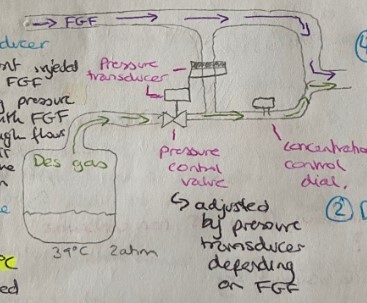 FGF
ducer
injected
FGF
pressure
with FGF
flow
Pressure
transducer
Des gas
pressure
control
valve
concentration
control
dial.
↳ adjusted
by pressure
transducer
depending
on FGF
39°C 2atm
②
°C
ed